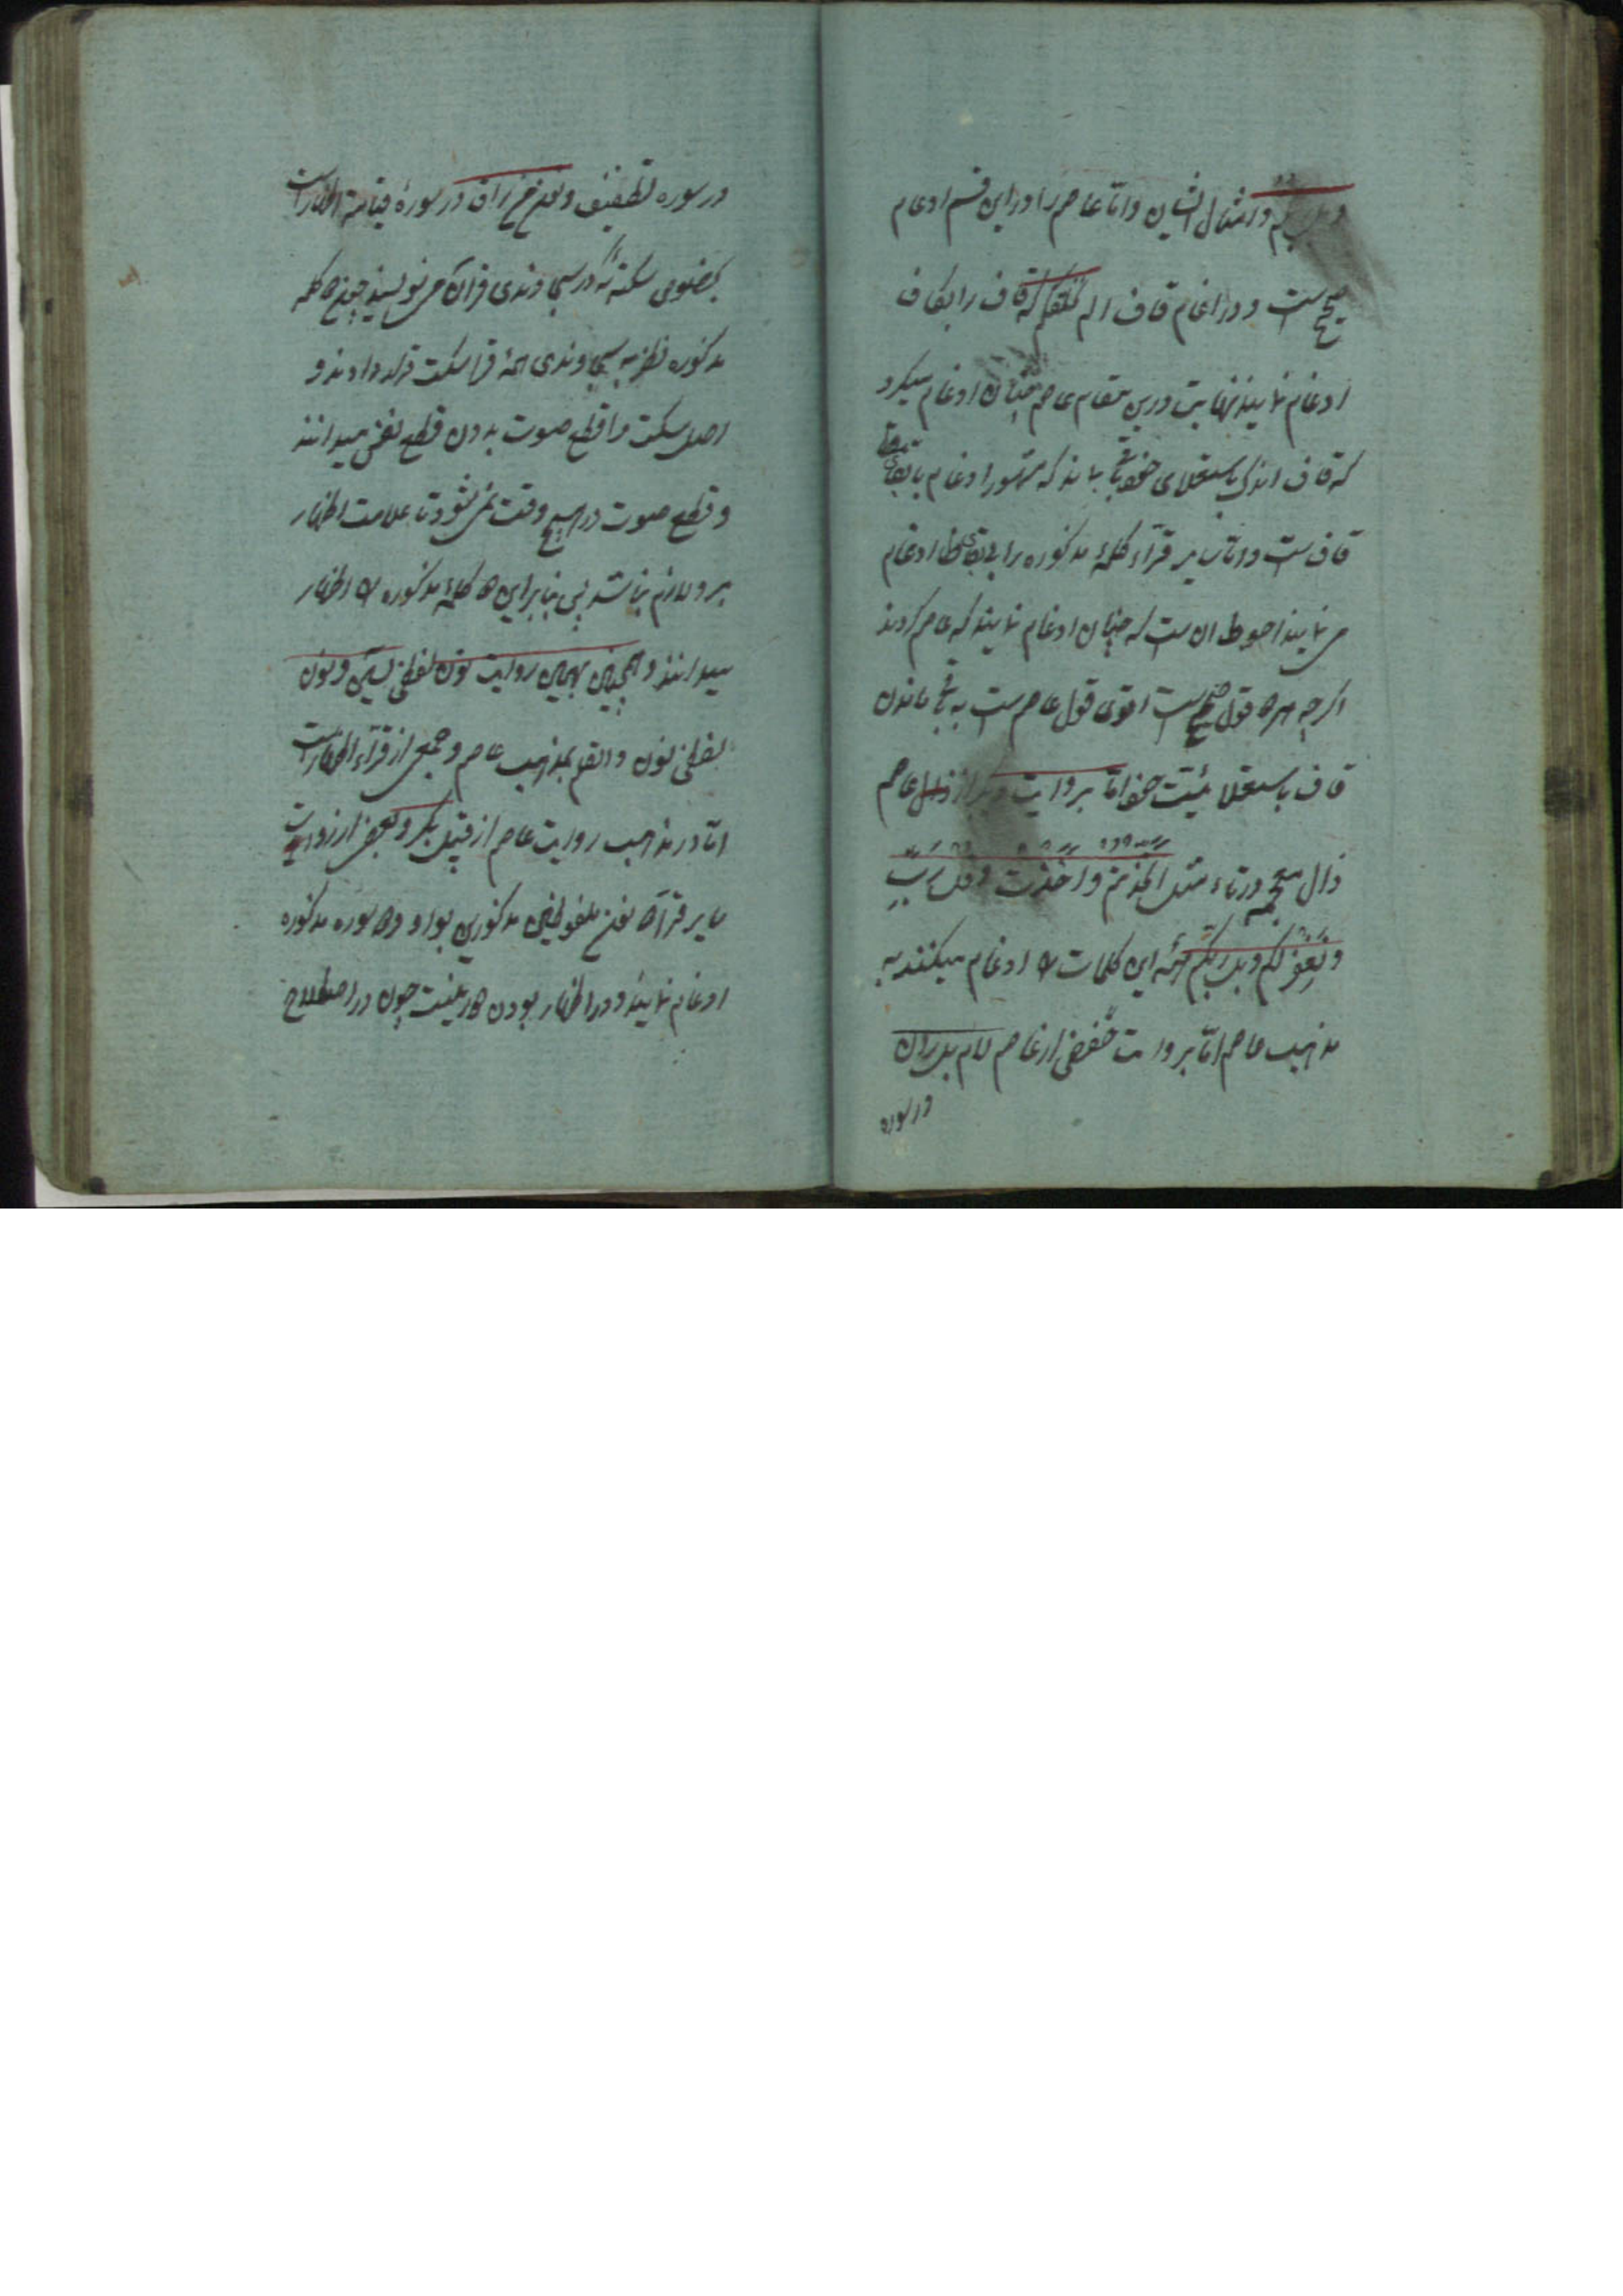 و امثال الشان و اما عاصم را در این قسم ادغام
صحیح ست و در ادغام قاف الم نخلقکم که قاف را بکاف
ادغام نمایند نهایت درین مقام عاصم چنان ادغام میکرد
که قاف اندکی باستعلای خود باقی ماند که مشهور ادغام با بقای
قاف ست و اما سایر قرآء کلمهٔ مذکوره را ادغام
می نمایند احوط ان ست که چنان ادغام نمایند که عاصم کردند
اگر چه هر دو قول صحیح ست اقوی قول عاصم ست به باقی ماندن
قاف باستعلائیت خود اما بروایت عاصم
ذال معجمه در تاء مثل اتخذتم و اخذت و قل رب
و نغفر لکم و بل ربکم همهٔ این کلمات را ادغام میکنند به
مذهب عاصم اما بروایت حفص از عاصم لام بل ران
در سوره
در سوره تطفیف و نون من راق در سورهٔ قیامة اظهار است
سکته که در سجاوندی قرآن می نویسند چون دو کلمه
مذکوره نظر به سجاوندی ائمهٔ قرا سکت قرار دادند و
اصل سکت را قطع صوت بدون قطع نفس میدانند
و قطع صوت در هیچ وقت نمی شود تا علامت اظهار
برو لازم نباشد پس بنابراین دو کلمهٔ مذکوره را اظهار
میدانند و همچنین بهمین روایت نون لفظ یسین و نون
لفظ نون و القلم بمذهب عاصم و جمعی از قرآء اظهار است
اما در مذهب روایت عاصم از قبل بکر و بعضی از رواست
سایر قرآء نون ملفوظین مذکورین بواو دو سوره مذکوره
ادغام نمایند و در اظهار بودن چون در اصطلاح